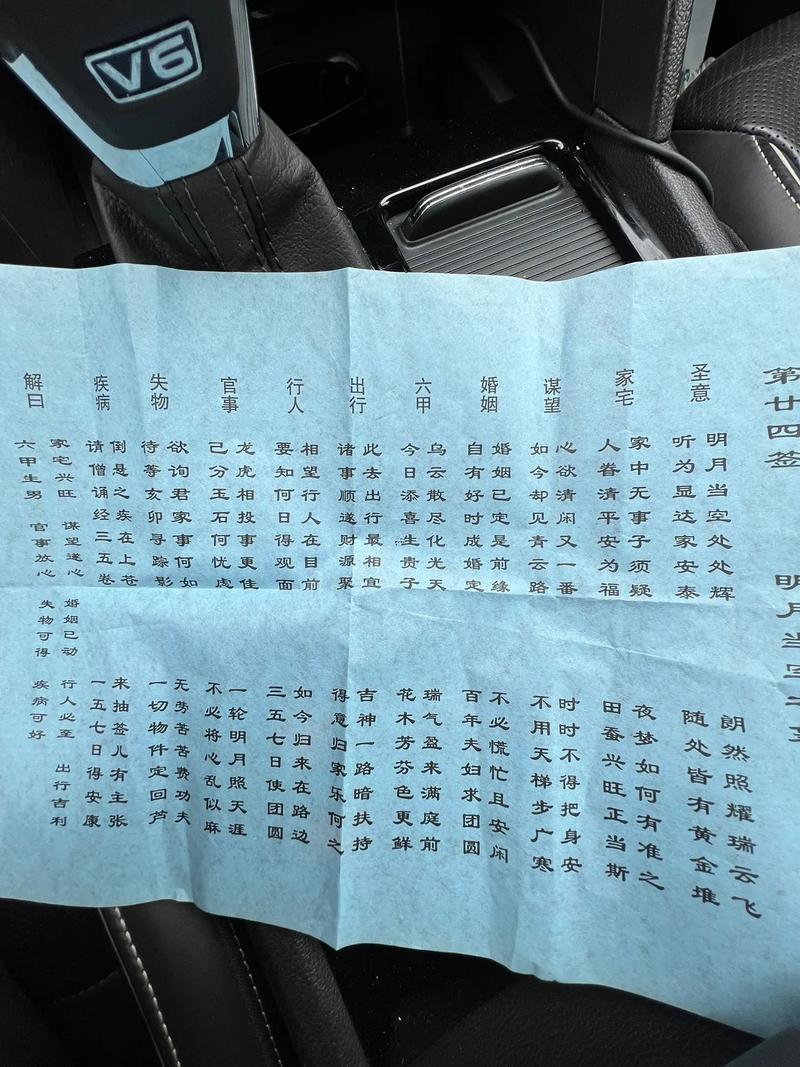 V6
第廿四签 明月当空
圣意
明月当空处处辉 朗然照耀瑞云飞
听为显达家安泰 随处皆有黄金堆
家宅
家中无事子须疑 夜梦如何有准之
人眷清平安为福 田蚕兴旺正当斯
谋望
心欲清闲又一番 时时不得把身安
如今却见青云路 不用天梯步广寒
婚姻
婚姻已定是前缘 不必慌忙且安闲
自有好时成婚定 百年夫妇求团圆
六甲
乌云散尽化光天 瑞气盈来满庭前
今日添喜生贵子 花木芳芬色更鲜
出行
此去出行最相宜 吉神一路暗扶持
诸事顺遂财源聚 得意归家乐何之
行人
相望行人在目前 如今归来在路边
要知何日得观面 三五七日使团圆
官事
龙虎相投事更佳 一轮明月照天涯
己分玉石何忧虑 不必将心乱似麻
失物
欲询君家事何如 无劳苦苦费功夫
待等亥卯寻踪影 一切物件定回芦
疾病
倒是之疾在上苍 来抽签儿有主张
请僧诵经三五卷 一五七日得安康
解曰
家宅兴旺 谋望遂心 婚姻已动 行人必至 出行吉利
六甲生男 官事放心 失物可得 疾病可好